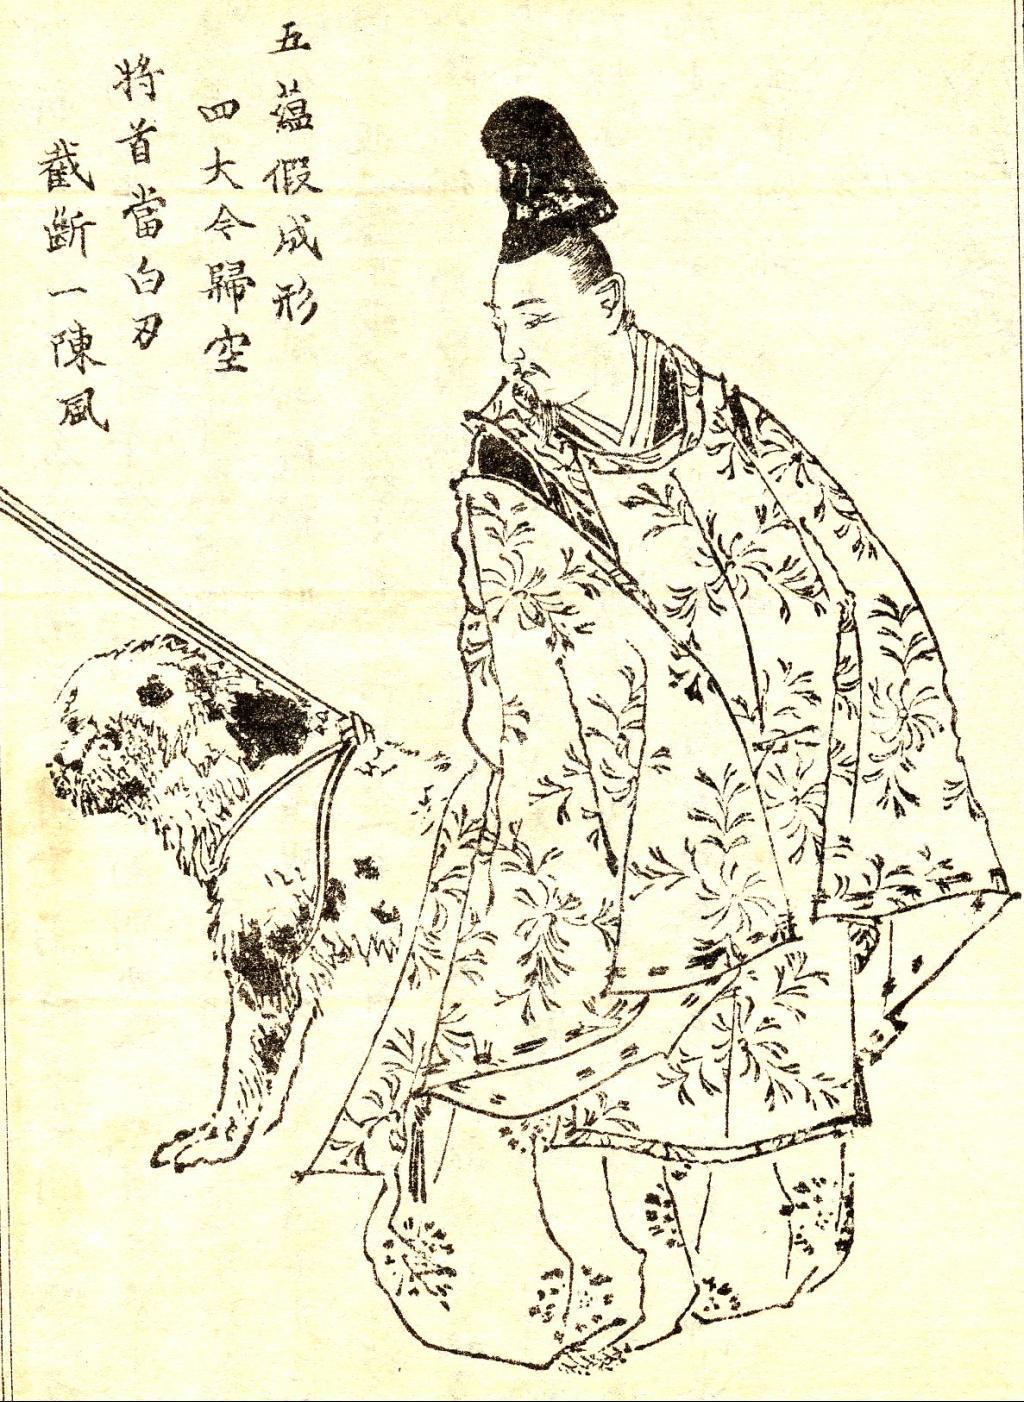 五蘊假成形
四大今歸空
將首當白刃
截斷一陳風